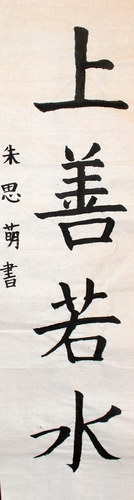 上善若水
朱思萌書